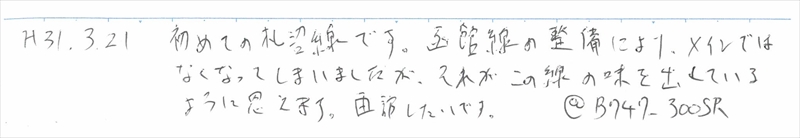 H31.3.21 初めての札沼線です。函館線の整備により、メインでは
なくなってしまいましたが、それがこの線の味を出している
ように思えます。再訪したいです。 @B747-300SR